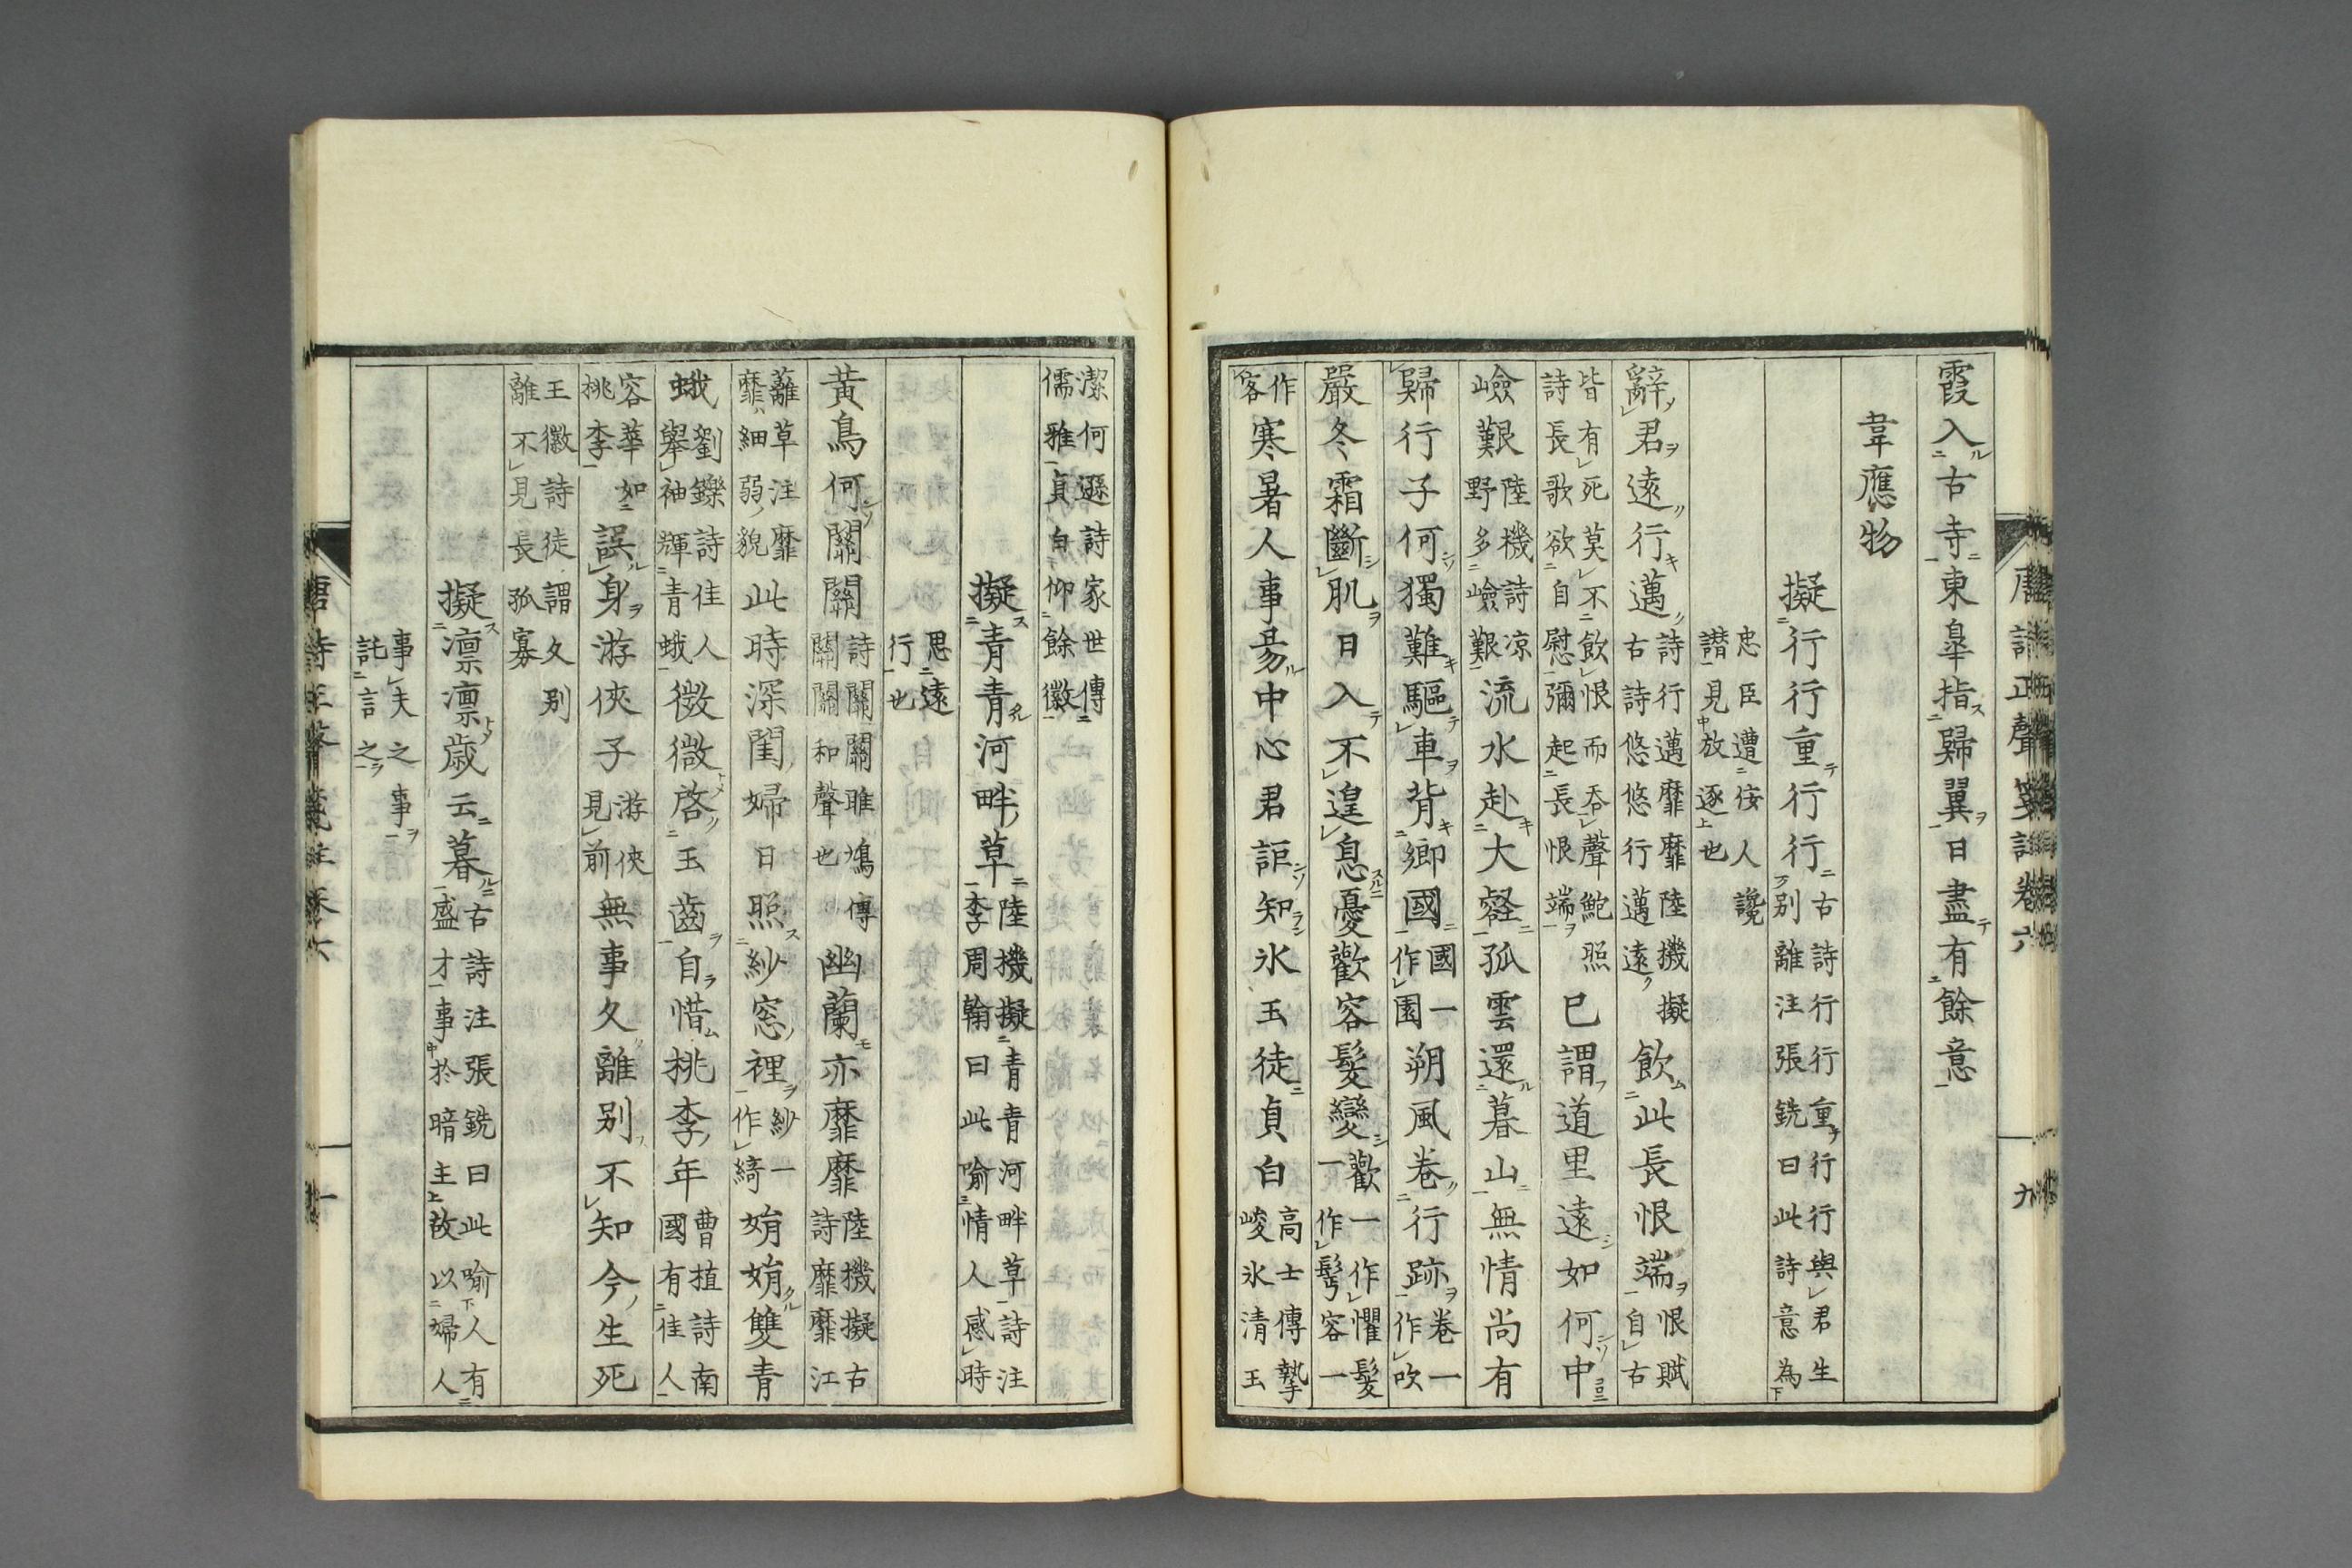 霞入古寺東皋指歸翼日盡有餘意
韋應物
擬行行重行行古詩行行重行行與君生別離注張銑曰此詩意為
忠臣遭佞人讒譖見放逐也
辭君遠行邁詩行邁靡靡陸機擬古詩悠悠行邁遠飲此長恨端恨賦自古
皆有死莫不飲恨而吞聲鮑照詩長歌欲自慰彌起長恨端已謂道里遠如何中
嶮艱陸機詩涼野多嶮艱流水赴大壑孤雲還暮山無情尚有
歸行子何獨難驅車背鄉國國一作園朔風卷行跡卷一作吹
嚴冬霜斷肌日入不遑息憂歡容髮變歡一作懼髮一作鬢容一
作客寒暑人事易中心君詎知氷玉徒貞白高士傳摯峻氷清玉
唐詩正聲箋註卷六 九
潔何遜詩家世傳儒雅貞白仰餘徽
擬青青河畔草陸機擬青青河畔草詩注李周翰曰此喻情人感時
思遠行也
黃鳥何關關詩關關雎鳩傳關關和聲也幽蘭亦靡靡陸機擬古詩靡靡江
蘺草注靡靡細弱貌此時深閨婦日照紗窓裡紗一作綺娟娟雙青
蛾劉鑠詩佳人舉袖輝青蛾微微啓玉齒自惜桃李年曹植詩南國有佳人
容華如桃李誤身游俠子游俠見前無事久離別不知今生死
王徽詩徒謂久別離不見長孤寡
擬凛凛歲云暮古詩注張銑曰此喻人有盛才事於暗主故以婦人
事夫之事託言之